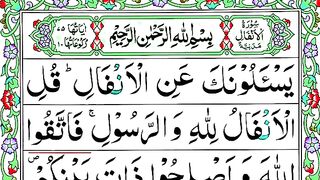 سُوْرَةُ الْاَنْفَالِ مَدَنِيَّةٌ
بِسْمِ اللّٰهِ الرَّحْمٰنِ الرَّحِيْمِ
اٰيَاتُهَا ٧٥
رُكُوْعَاتُهَا ١٠
يَسْـَٔلُوْنَكَ عَنِ الْاَنْفَالِ ؕ قُلِ
الْاَنْفَالُ لِلّٰهِ وَ الرَّسُوْلِ ۚ فَاتَّقُوا
اللّٰهَ وَ اَصْلِحُوْا ذَاتَ بَيْنِكُمْ ۪